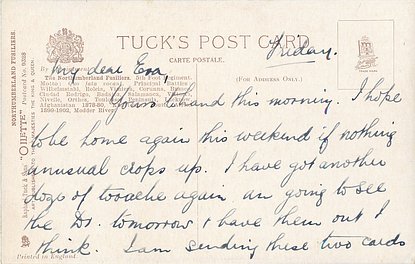 TUCK'S POST CARD
CARTE POSTALE.
Friday.
My dear Eva,
The Northumberland Fusiliers. 5th Foot Regiment.
Wilhelmstahl, Roleia, Vimiera, Corunna, Busaco,
Ciudad Rodrigo, Badajoz, Salamanca, Vittoria,
Nivelle, Orthes, Toulouse, Peninsula, Lucknow,
Afghanistan 1878-80,
Modder River.
(FOR ADDRESS ONLY.)
TRADE MARK
Yours to hand this morning. I hope
to be home again this weekend if nothing
unusual crops up. I have got another
dose of tooache again an going to see
the Dr. tomorrow & have them out I
think. I am sending these two cards
Printed in England
Raphael Tuck & Sons' "OILETTE" Postcard No.
NORTHUMBERLAND FUSILIERS.
THEIR MAJESTIES THE KING & QUEEN.